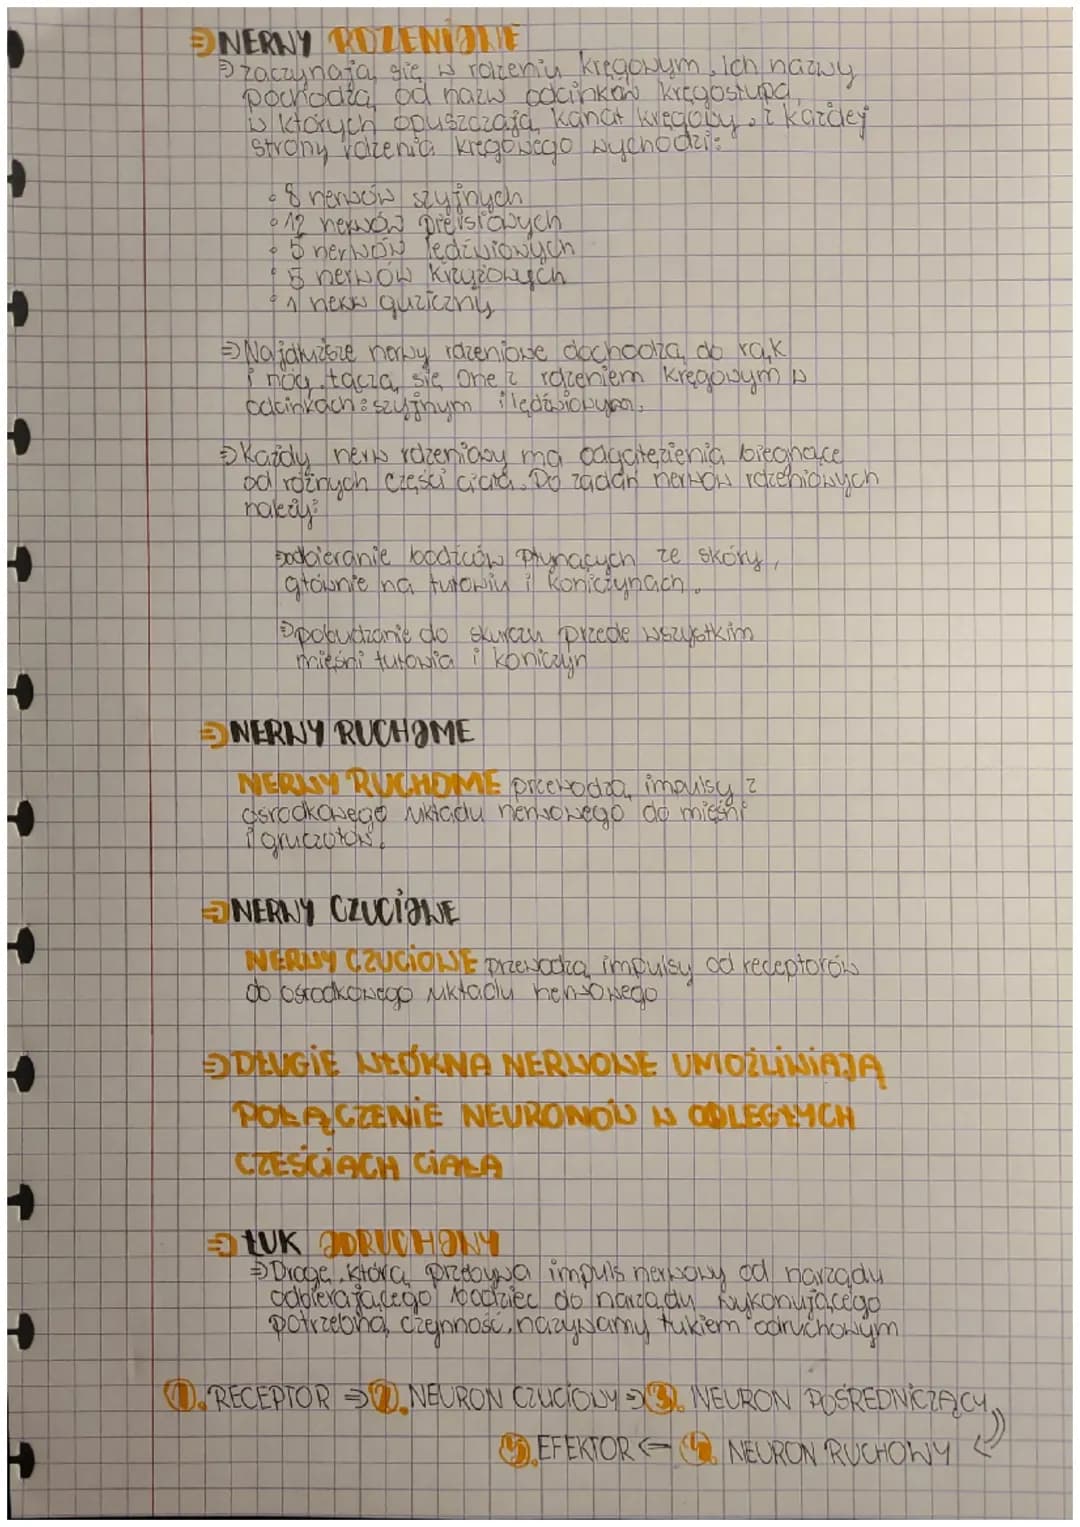 NERWY RDZENIOWE
zaczynają się w rdzeniu kręgowym. Ich nazwy
pochodzą od nazw odcinków kręgosłupa,
w których opuszczają kanał kręgowy. z każdej
strony rdzenia kręgowego wychodzi:
• 8 nerwów szyjnych
• 12 nerwów piersiowych
• 5 nerwów lędźwiowych
• 5 nerwów krzyżowych
• 1 nerw guziczny
Najdłuższe nerwy rdzeniowe dochodzą do rąk
i nóg, łączą się one z rdzeniem kręgowym w
odcinkach: szyjnym i lędźwiowym.
Każdy nerw rdzeniowy ma odgałęzienia biegnące
od różnych części ciała. Do zadań nerwów rdzeniowych
należy:
odbieranie bodźców płynących ze skóry,
głównie na tułowiu i koniczynach.
pobudzanie do skurczu przede wszystkim
mięśni tułowia i koniczyn
NERWY RUCHOME
NERWY RUCHOME przewodzą impulsy z
ośrodkowego układu nerwowego do mięśni
i gruczołów.
NERWY CZUCIOWE
NERWY CZUCIOWE przewodzą impulsy od receptorów
do ośrodkowego układu nerwowego
DŁUGIE WŁÓKNA NERWOWE UMOŻLIWIAJĄ
POŁĄCZENIE NEURONÓW W ODLEGŁYCH
CZĘŚCIACH CIAŁA
ŁUK ODRUCHOWY
Drogę, którą przebywa impuls nerwowy od narządu
odbierającego bodziec do narządu wykonującego
potrzebną czynność, nazywamy łukiem odruchowym
1. RECEPTOR ⇒ 2. NEURON CZUCIOWY ⇒ 3. NEURON POŚREDNICZĄCY
5. EFEKTOR ⇐ 4. NEURON RUCHOWY